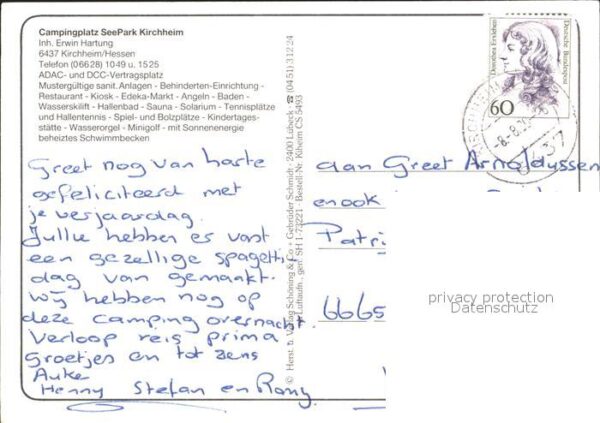 Campingplatz SeePark Kirchheim
Inh. Erwin Hartung
6437 Kirchheim/Hessen
Telefon (06628) 1049 u. 1525
ADAC- und DCC-Vertragsplatz
Mustergültige sanit. Anlagen - Behinderten-Einrichtung -
Restaurant - Kiosk - Edeka-Markt - Angeln - Baden -
Wasserskilift - Hallenbad - Sauna - Solarium - Tennisplätze
und Hallentennis - Spiel- und Bolzplätze - Kindertages-
stätte - Wasserorgel - Minigolf - mit Sonnenenergie
beheiztes Schwimmbecken
Greet nog van harte
gefeliciteerd met
je verjaardag.
Jullie hebben er vast
een gezellige spagetti
dag van gemaakt.
Wij hebben nog op
deze camping overnacht.
Verloop reis prima
Groetjes en tot ziens
Auke
Henny Stefan en Rony
© Herst. u. Verlag Schöning & Co + Gebrüder Schmidt · 2400 Lübeck · ☎ (0451) 31224
Luftaufn. gen. SH I-73221 · Bestell-Nr. Kiheim CS 5493
Dorothea Erxleben
Deutsche Bundespost
60
-8.-8.
6437
aan Greet Arnoldussen
en ook
Patri
6665
privacy protection
Datenschutz